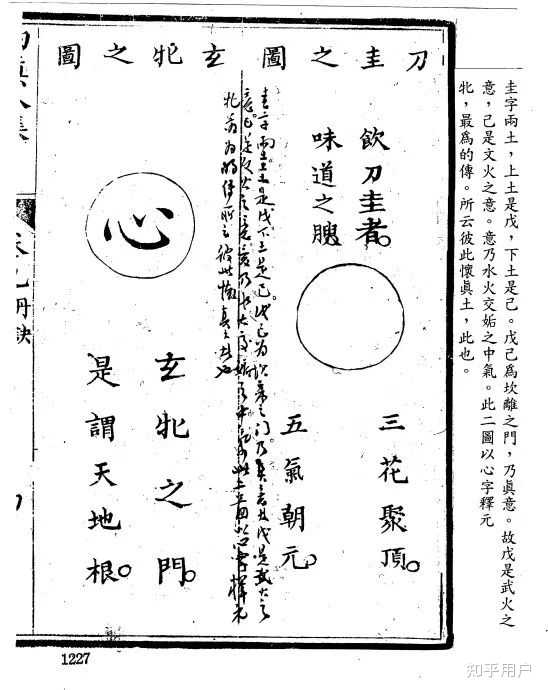 圭字兩土，上土是戊，下土是己。戊己爲坎離之門，乃眞意。故戊是武火之
意，己是文火之意。意乃水火交姤之中氣。此二圖以心字釋元
牝，最爲的傳。所云彼此懷眞土，此也。
刀圭之圖
飲刀圭者。
味道之腴
三花聚頂。
五氣朝元。
玄牝之圖
心
玄牝之門。
是謂天地根。
1227
知乎用户